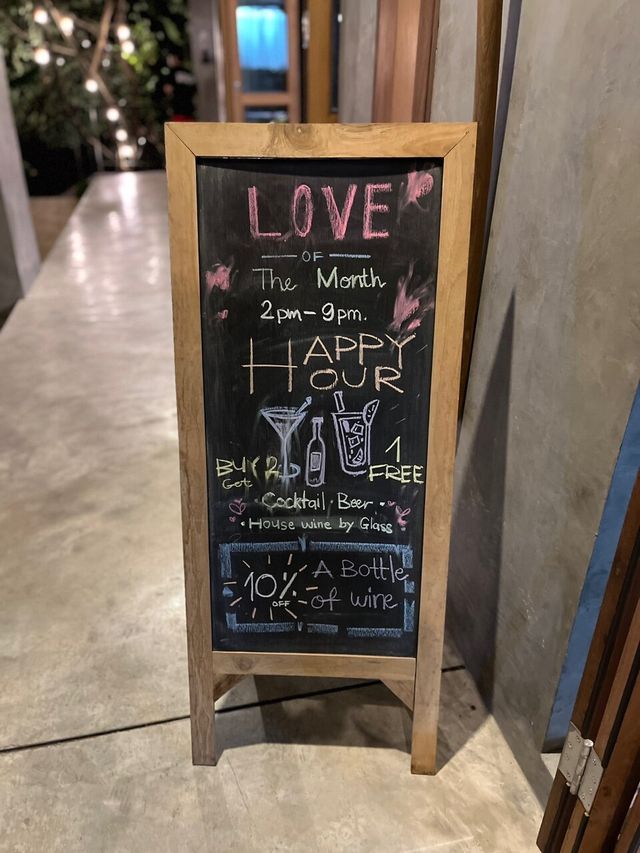 LOVE
OF
The Month
2pm-9pm.
HAPPY
HOUR
BUY 2
Get
1
FREE
Cocktail · Beer ·
· House wine by Glass
10% OFF
A Bottle
of wine